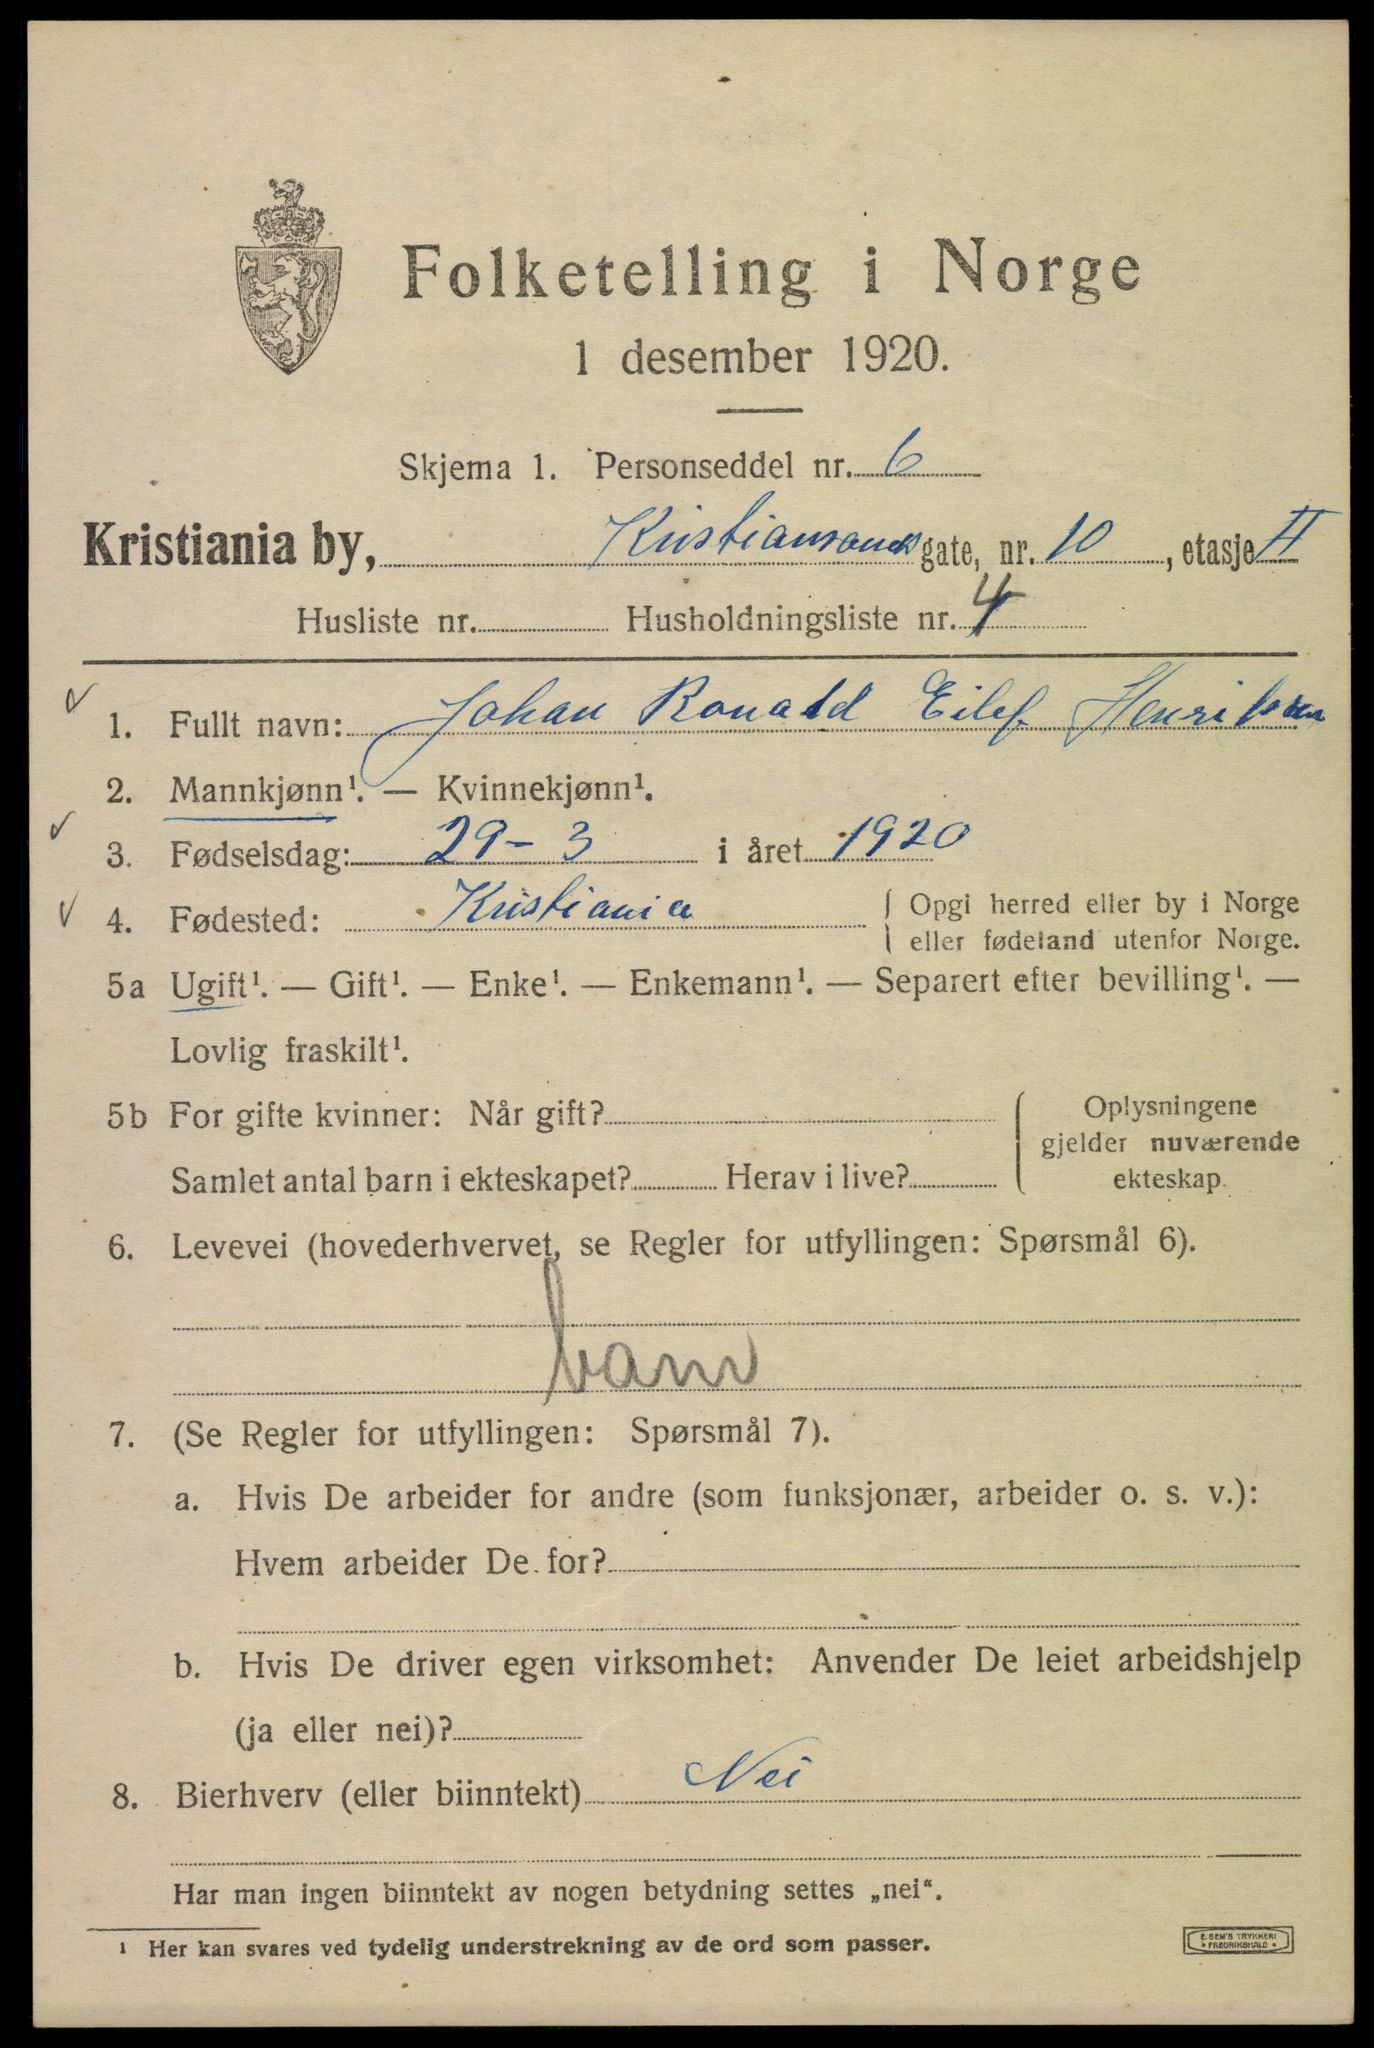 Folketelling i Norge
1 desember 1920.
Skjema 1. Personseddel nr. 6
Kristiania by, Kristiansands gate, nr. 10, etasje II
Husliste nr. Husholdningsliste nr. 4
1. Fullt navn: Johan Ronald Eilef Henriksen
2. Mannkjønn¹. — Kvinnekjønn¹.
3. Fødselsdag: 29 - 3 i året 1920
4. Fødested: Kristiania { Opgi herred eller by i Norge
eller fødeland utenfor Norge.
5a Ugift¹. — Gift¹. — Enke¹. — Enkemann¹. — Separert efter bevilling¹. —
Lovlig fraskilt¹.
5b For gifte kvinner: Når gift? { Oplysningene
gjelder nuværende
Samlet antal barn i ekteskapet? Herav i live? ekteskap.
6. Levevei (hovederhvervet, se Regler for utfyllingen: Spørsmål 6).
barn
7. (Se Regler for utfyllingen: Spørsmål 7).
a. Hvis De arbeider for andre (som funksjonær, arbeider o. s. v.):
Hvem arbeider De for?
b. Hvis De driver egen virksomhet: Anvender De leiet arbeidshjelp
(ja eller nei)?
8. Bierhverv (eller biinntekt) Nei
Har man ingen biinntekt av nogen betydning settes „nei“.
¹ Her kan svares ved tydelig understrekning av de ord som passer.
E. SEM'S TRYKKERI
• FREDRIKSHALD •